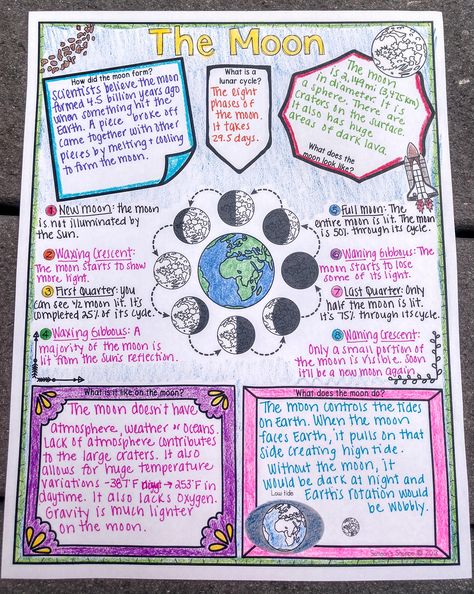 The Moon
How did the moon form?
Scientists believe the moon
formed 4.5 billion years ago
when something hit the
Earth. A piece broke off
came together with other
pieces by melting + cooling
to form the moon.
What is a
lunar cycle?
The eight
phases of
the moon.
It takes
29.5 days.
The moon
is 2,149 mi (3,475 km)
in diameter. It is
a sphere. There are
craters in the surface.
It also has huge
areas of dark lava.
What does the
moon look like?
1 New moon: the moon
is not illuminated by
the Sun.
2 Waxing Crescent:
The moon starts to show
more light.
3 First Quarter: you
can see 1/2 moon lit. It's
completed 25% of its cycle.
4 Waxing Gibbous: A
majority of the moon is
lit from the sun's reflection.
5 Full moon: The
entire moon is lit. The moon
is 50% through its cycle.
6 Waning Gibbous: The
moon starts to lose
some of its light.
7 Last Quarter: Only
half the moon is lit.
It's 75% through its cycle.
8 Waning Crescent:
Only a small portion of
the moon is visible. Soon
it'll be a new moon again.
What is it like on the moon?
The moon doesn't have
atmosphere, weather or oceans.
Lack of atmosphere contributes
to the large craters. It also
allows for huge temperature
variations -387°F → 253°F in
daytime. It also lacks oxygen.
Gravity is much lighter
on the moon.
What does the moon do?
The moon controls the tides
on Earth. When the moon
faces Earth, it pulls on that
side creating high tide.
Without the moon, it
would be dark at night and
Earth's rotation would
be wobbly.
Low tide